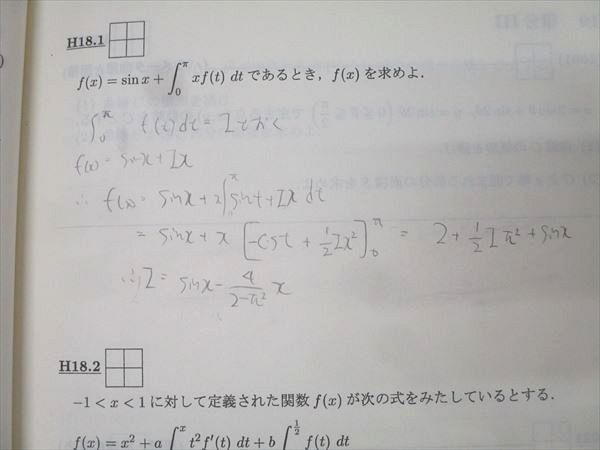 H18.1
f(x) = sin x + ∫₀^π x f(t) dt であるとき，f(x) を求めよ．
∫₀^π f(t)dt = Iとおく
f(x) = sinx + Ix
∴ f(x) = sinx + x∫^π sint + Ix dt
= sinx + x [-cost + 1/2 Ix²]₀^π = 2 + 1/2 Iπ² + sinx
∴ I = sinx - 4/(2-π²) x
H18.2
−1 < x < 1 に対して定義された関数 f(x) が次の式をみたしているとする．
f(x) = x² + a ∫^x t² f′(t) dt + b ∫^(1/2) f(t) dt